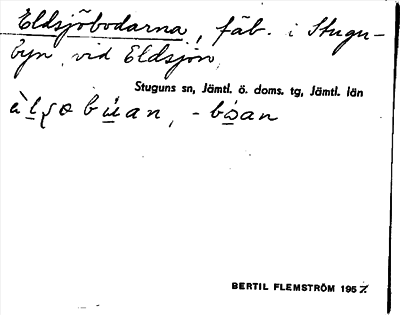 Eldsjöbodarna, fäb. i Stugu-
byn, vid Eldsjön,
Stuguns sn, Jämtl. ö. doms. tg, Jämtl. län
BERTIL FLEMSTRÖM 1957